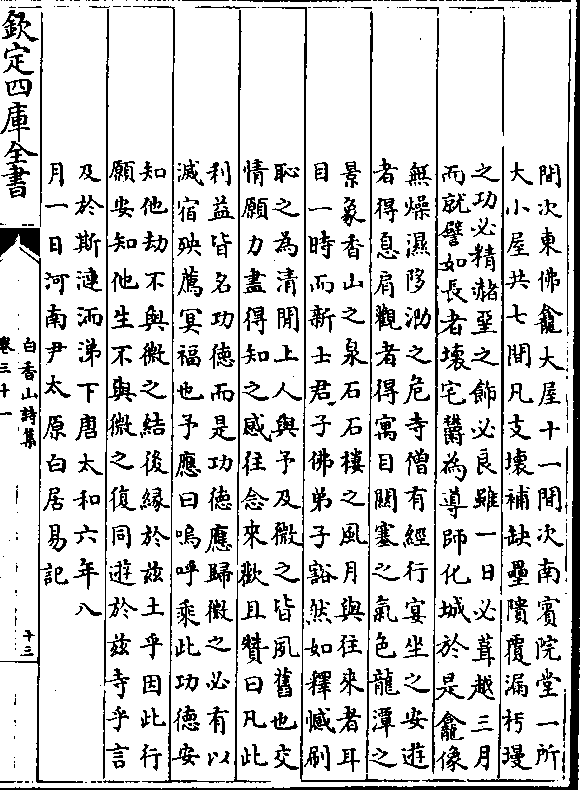 間次東佛龕大屋十一間次南賓院堂一所
大小屋共七間凡支壞補缺壘隤覆漏杇墁
之功必精赭堊之飾必良雖一日必葺越三月
而就譬如長者壞宅鬱為導師化城於是龕像
無燥濕陊泐之危寺僧有經行宴坐之安遊
者得息肩觀者得寓目關塞之氣色龍潭之
景象香山之泉石石樓之風月與往來者耳
目一時而新士君子佛弟子豁然如釋憾刷
恥之為清閒上人與予及微之皆夙舊也交
情願力盡得知之感往念來歡且贊曰凡此
利益皆名功德而是功德應歸微之必有以
滅宿殃薦冥福也予應曰嗚呼乘此功德安
知他劫不與微之結後緣於兹土乎因此行
願安知他生不與微之復同遊於兹寺乎言
及於斯漣洏涕下唐太和六年八
月一日河南尹太原白居易記
欽定四庫全書
白香山詩集
卷三十一
十三